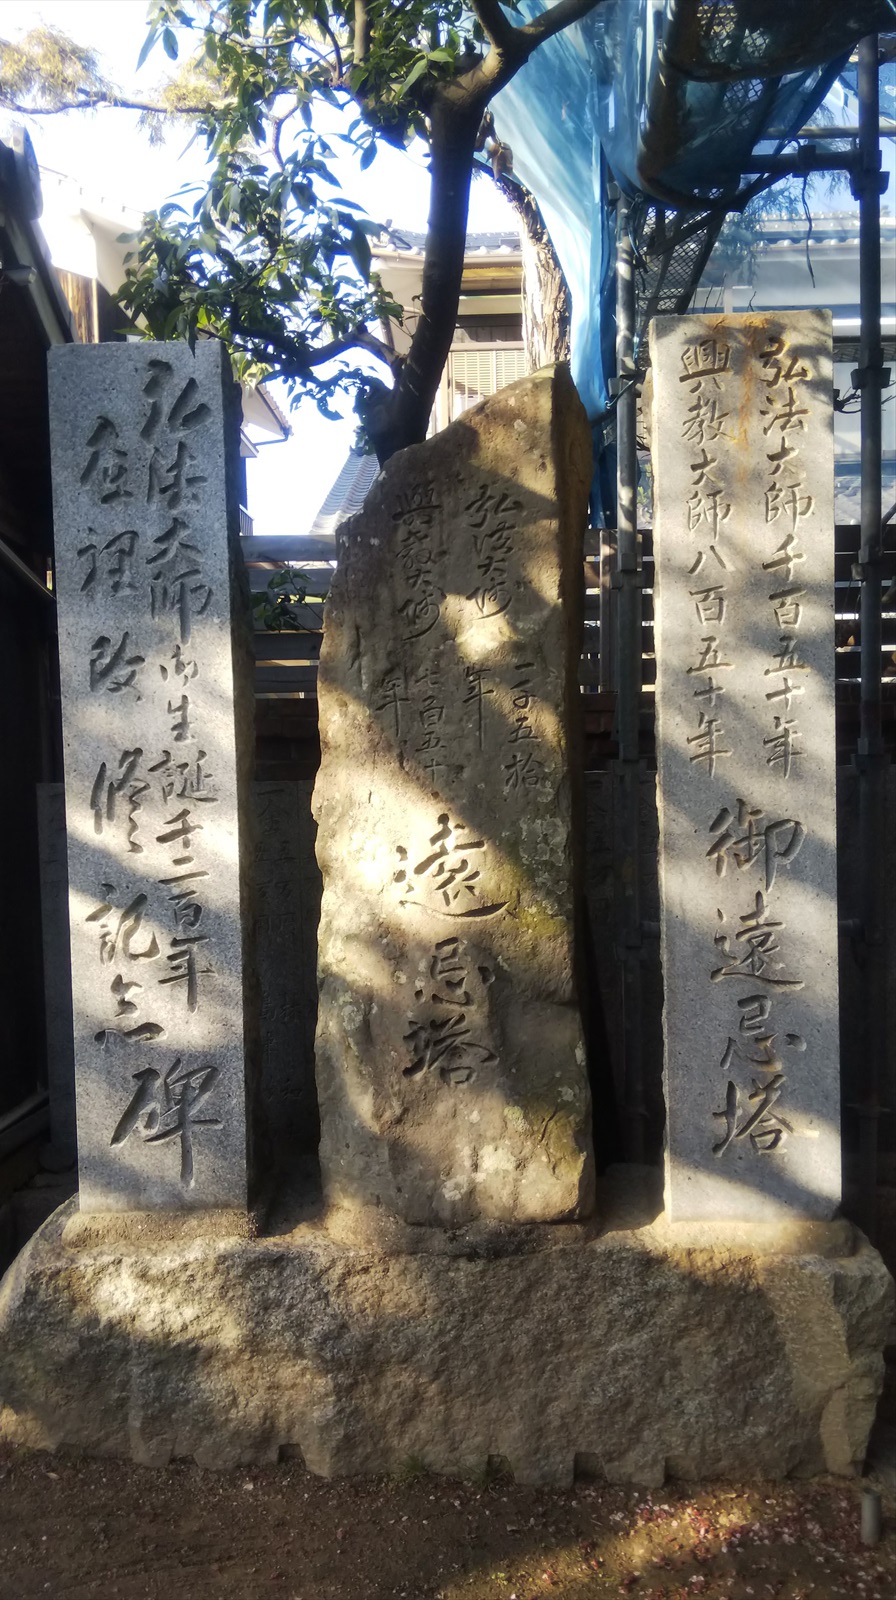 弘法大師千百五十年
興教大師八百五十年
御遠忌塔
弘法大師一千五拾年
興教大師七百五十年
遠忌塔
弘法大師御生誕千二百年
庫裡改修記念碑